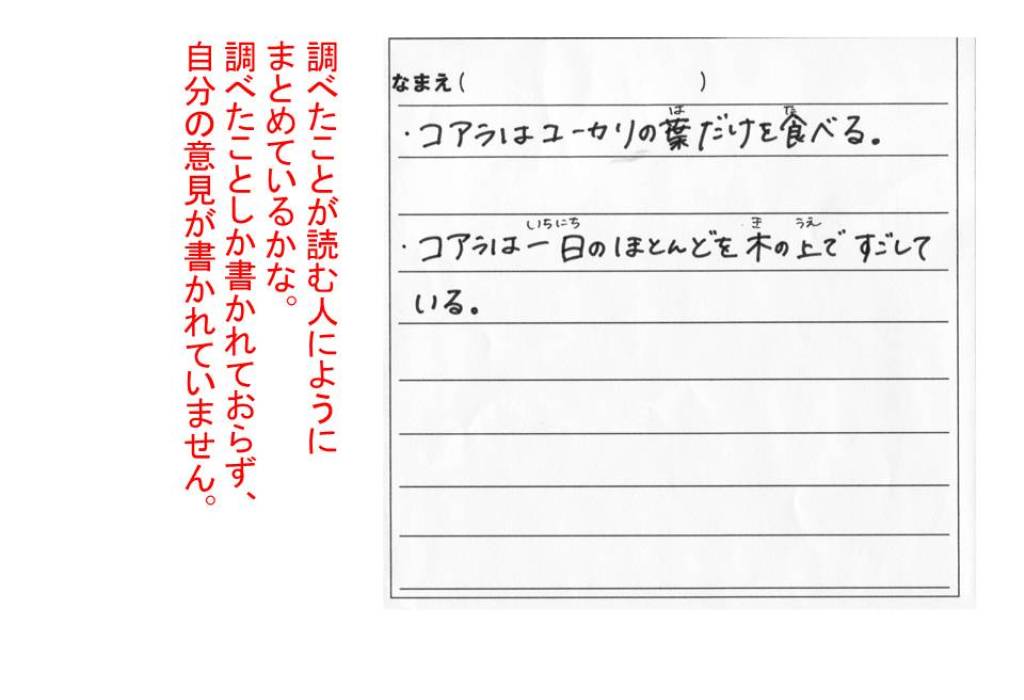 調べたことが読む人にように
まとめているかな。
調べたことしか書かれておらず、
自分の意見が書かれていません。
なまえ( )
は た
・コアラはユーカリの葉だけを食べる。
いちにち き うえ
・コアラは一日のほとんどを木の上ですごして
いる。